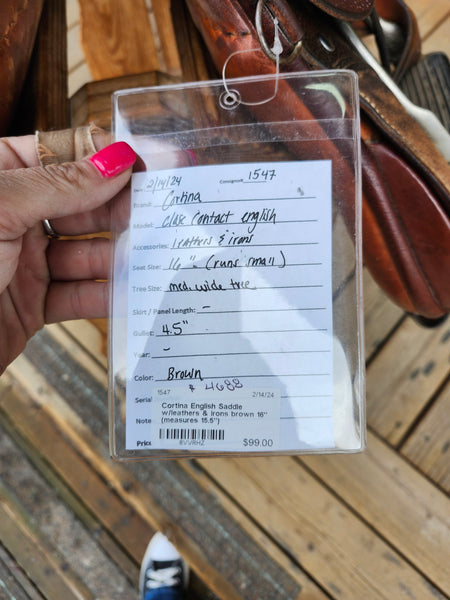 Date: 2/14/24 Consignor# 1547
Brand: Cortina
Model: close contact english
Accessories: leathers & irons
Seat Size: 16" - (runs small)
Tree Size: med. wide tree
Skirt / Panel Length: -
Gullet: 4.5"
Year: -
Color: Brown
Serial # 4688
1547 2/14/24
Cortina English Saddle
w/leathers & irons brown 16"
(measures 15.5")
Note
Price $99.00